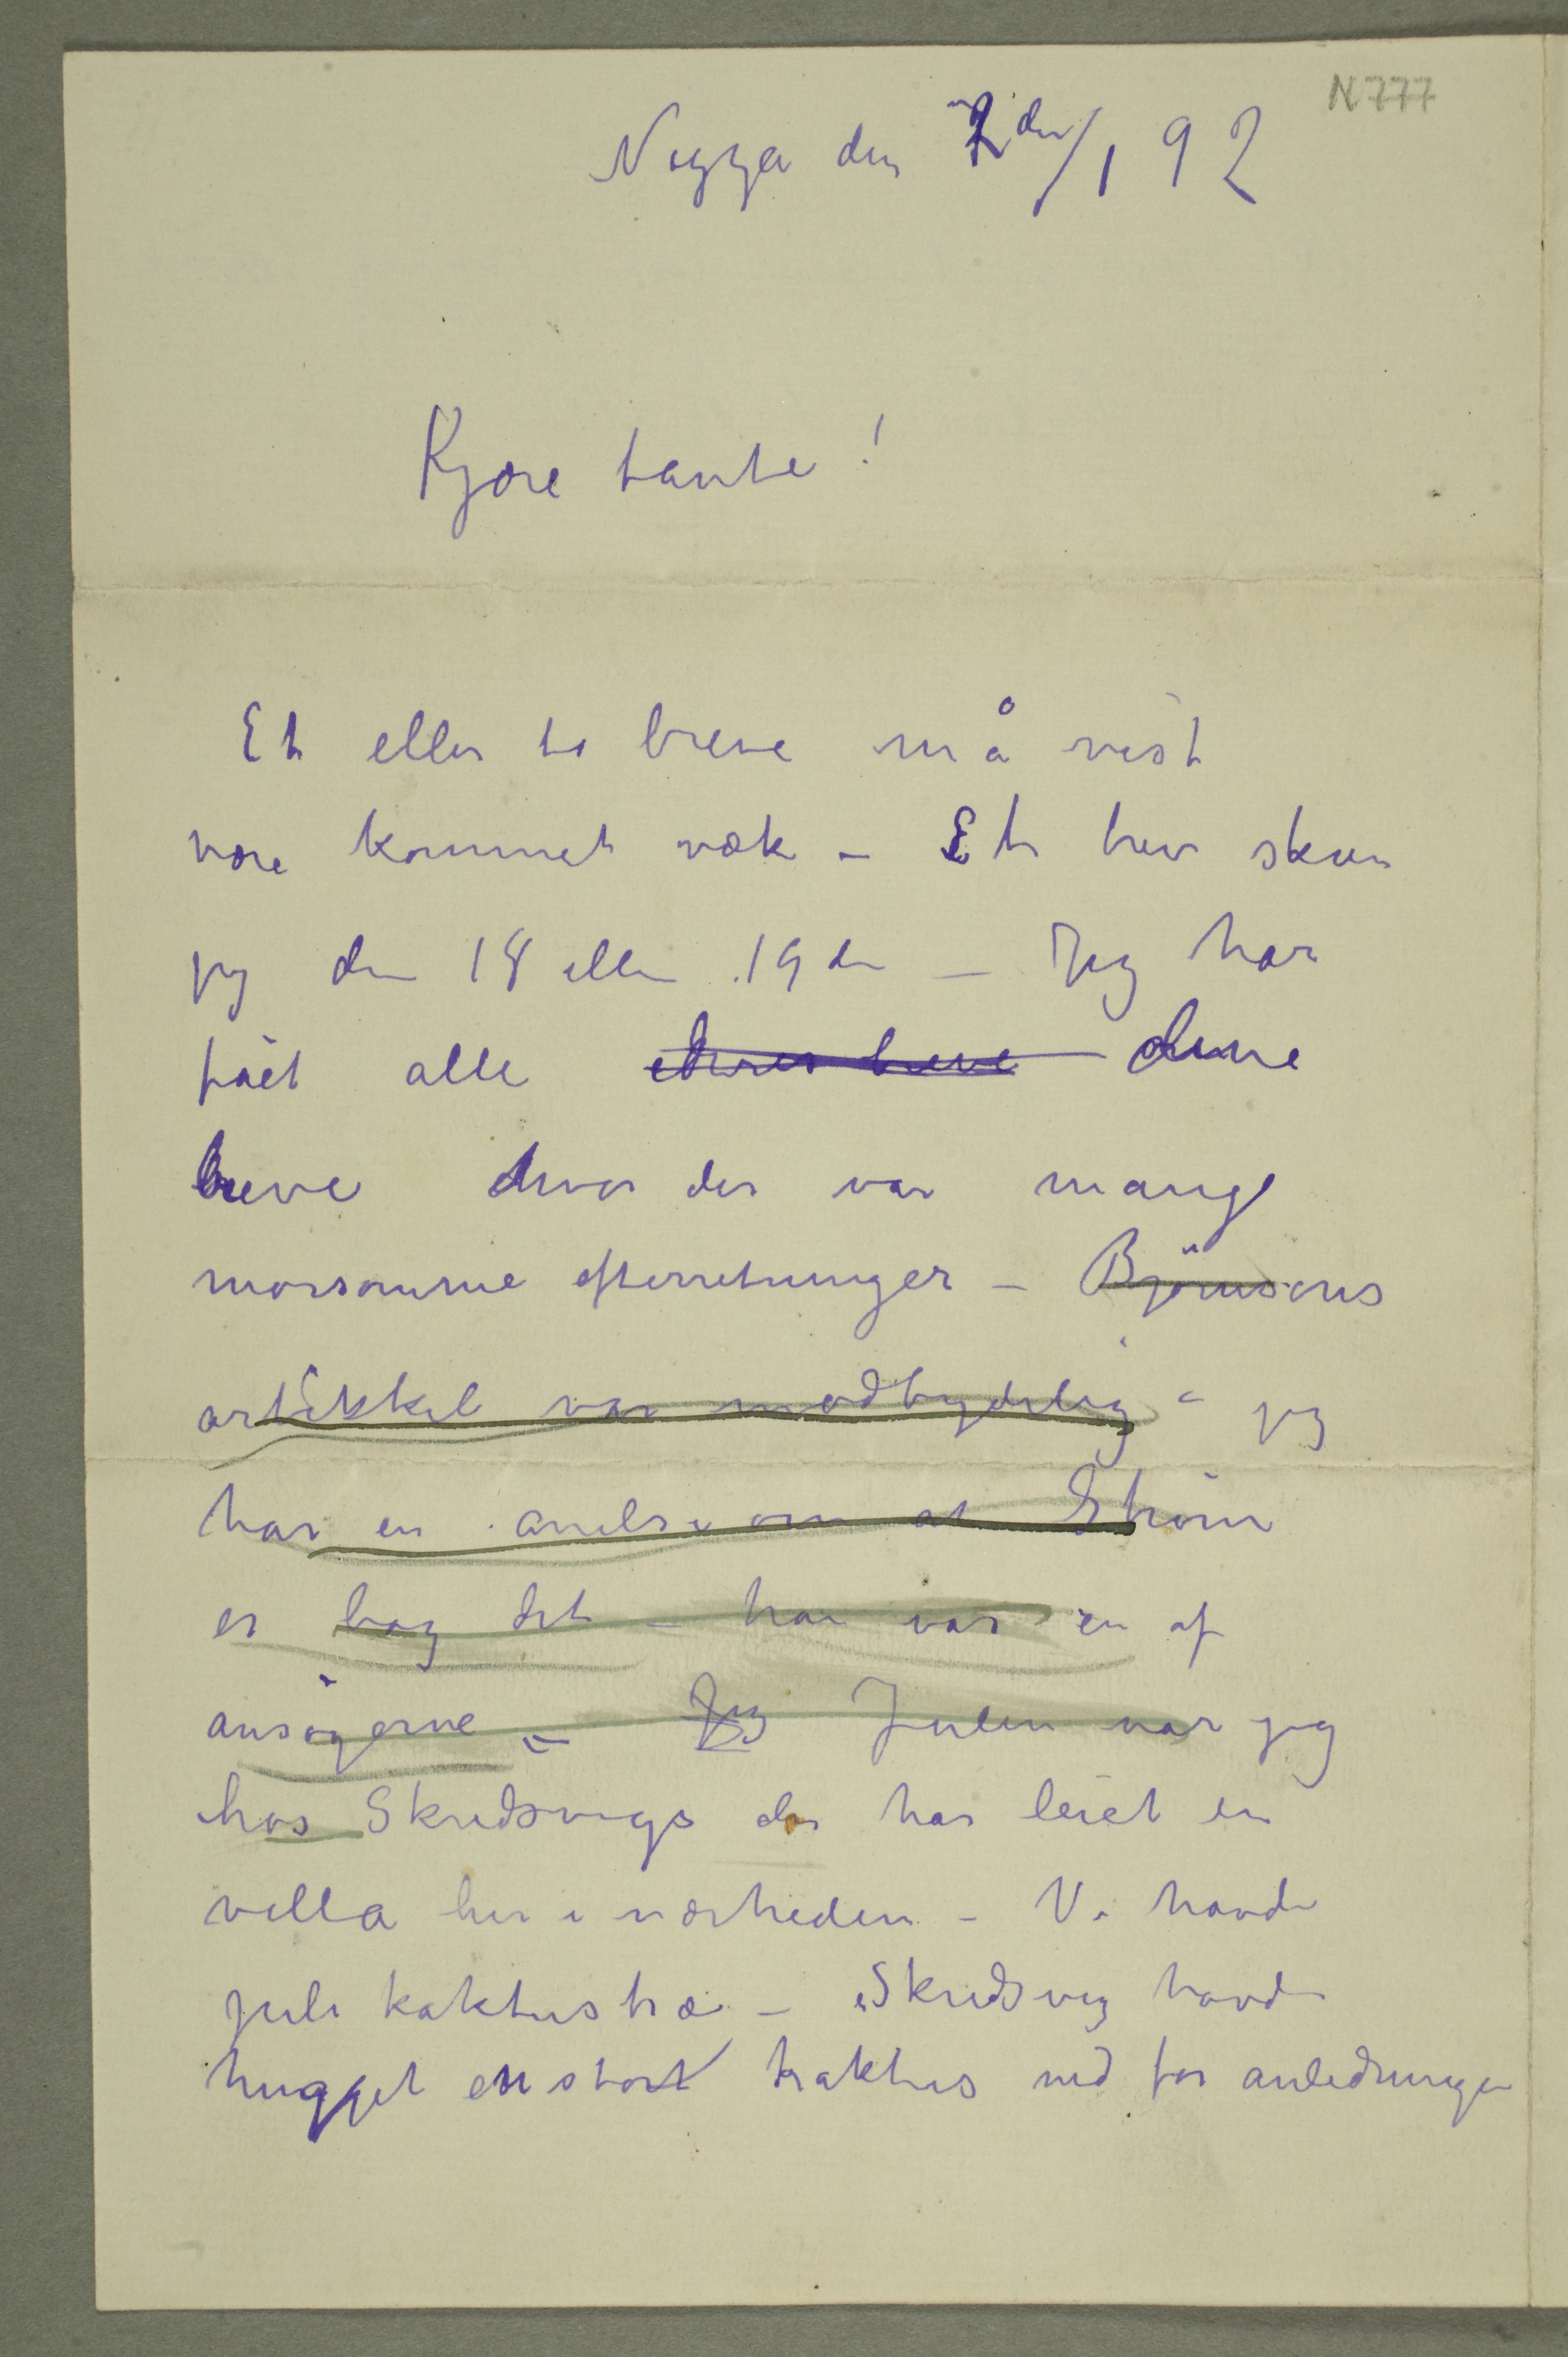 N 777
Nizza den 2den/1 92
Kjære tante!
Et eller to breve må vist
være kommet væk – Et brev skrev
jeg den 18 eller 19de – Jeg har
fået alle eders breve dine
breve hvor der var mange
morsomme efterretninger – Bjørnsons
artikkel var modbydelig – jeg
har en anelse om at Strøm
er bag det – han var en af
ansøgerne – Jeg Julen var jeg
hos Skredsvigs der har leiet en
villa her i nærheden – Vi havde
jule kaktustræ – Skredsvig havde
hugget en stort kaktus ned for anledningen